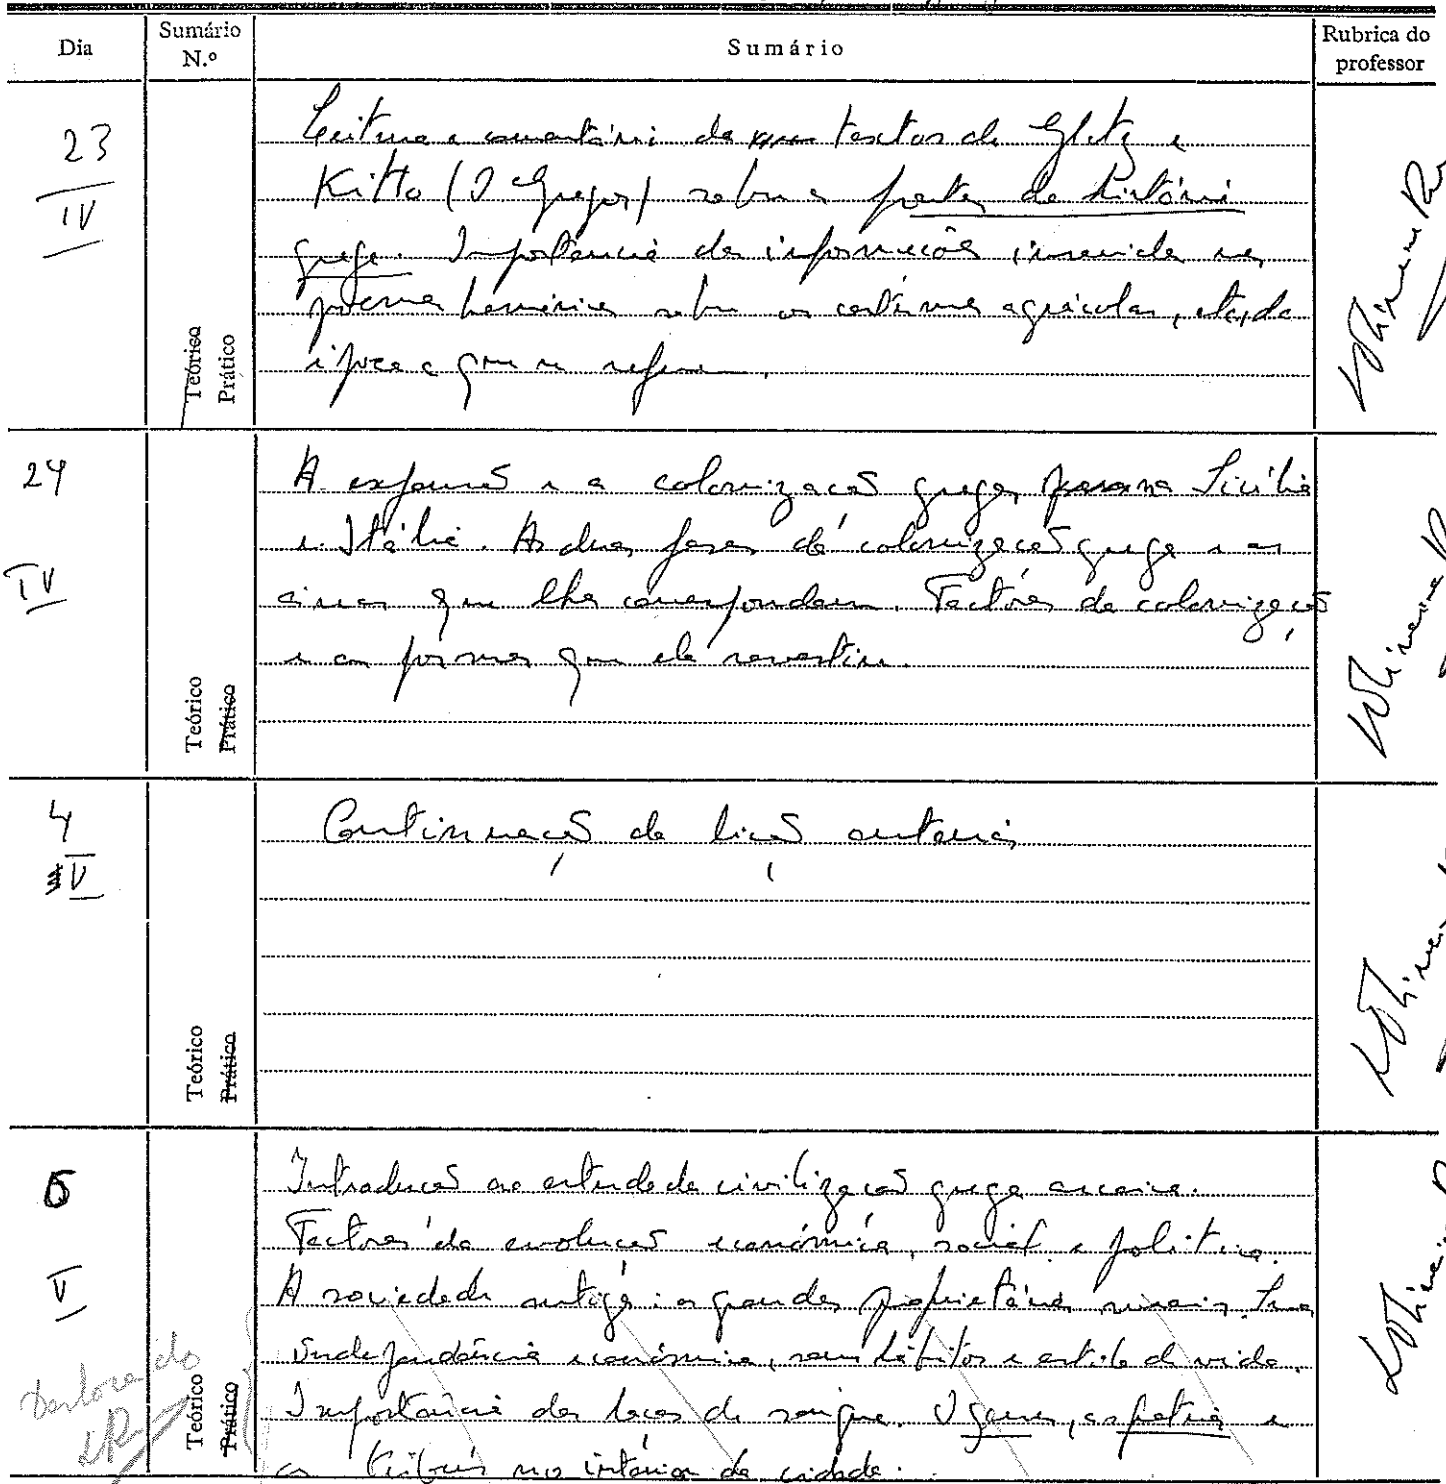 Dia
Sumário N.º
Sumário
Rubrica do professor
23
IV
Teórico
Prático
Leitura e comentário de textos de Glotz e
Kitto (Os Gregos) sobre as fontes da história
grega. Importância das informações inseridas nos
poemas homéricos sobre os costumes agrícolas, etc, da
época a que se referem.
24
IV
Teórico
Prático
A expansão e a colonização grega, para a Sicília
e Itália. As duas fases da colonização grega e as
áreas que lhe correspondem. Factores da colonização
e as formas que ela revestiu.
4
V
Teórico
Prático
Continuação da lição anterior
5
V
Teórico
Prático
Introdução ao estudo da civilização grega arcaica.
Factores da evolução económica, social e política.
A sociedade antiga: os grandes proprietários rurais. Sua
independência económica, seus hábitos e estilo de vida.
Importância dos laços de sangue. O genos, as fratrias e
as tribus no interior da cidade.